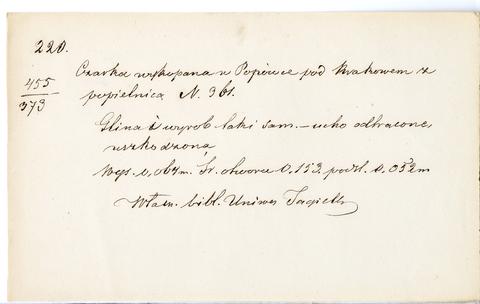 220.
455
373
Czarka wykopana w Popówce pod Krakowem z
popielnicą N. 361.
Glina i wyrob taki sam. – ucho odtrącone,
uszkodzona
Wys. 0,087m. Śr. otworu 0.153. podst. 0.052m
Własn. bibl. Uniwer Jagiell